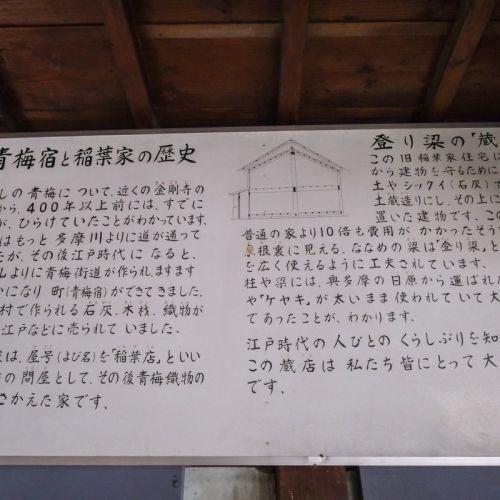 青梅宿と稲葉家の歴史
しの青梅について、近くの金剛寺の
から、400年以上前には、すでに
が、ひらけていたことがわかっています。
はもっと多摩川よりに道が通って
たが、その後江戸時代になると、
山よりに青梅街道が作られ、ますます
かになり町(青梅宿)ができてきました。
村で作られる石灰、木材、織物が
江戸などに売られていました。
は、屋号(よび名)を「稲葉店」といい
の問屋として、その後青梅織物の
さかえた家です。
登り梁の「蔵
この旧稲葉家住宅に
から建物を守るために
土やシックイ(石灰)で
土蔵造りにし、その上に
置いた建物です。こ
普通の家より10倍も費用がかかったそう
屋根裏に見える、ななめの梁は「登り梁」と
を広く使えるように工夫されています。
柱や梁には、奥多摩の日原から運ばれた
や「ケヤキ」が太いまま使われていて大
であったことが、わかります。
江戸時代の人びとのくらしぶりを知
この蔵店は私たち皆にとって大
です。